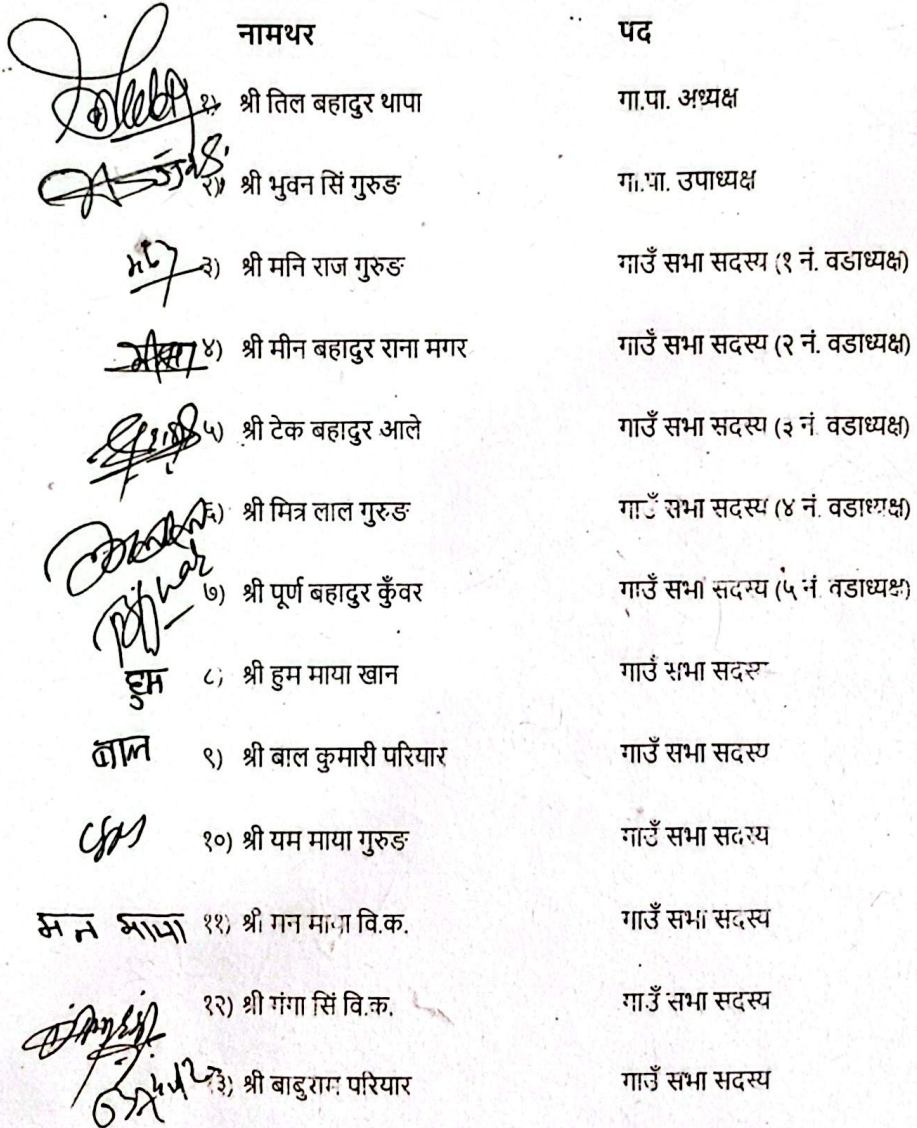 नामथर पद
१) श्री तिल बहादुर थापा गा.पा. अध्यक्ष
२) श्री भुवन सिं गुरुङ गा.पा. उपाध्यक्ष
३) श्री मनि राज गुरुङ गाउँ सभा सदस्य (१ नं. वडाध्यक्ष)
४) श्री मीन बहादुर राना मगर गाउँ सभा सदस्य (२ नं. वडाध्यक्ष)
५) श्री टेक बहादुर आले गाउँ सभा सदस्य (३ नं. वडाध्यक्ष)
६) श्री मित्र लाल गुरुङ गाउँ सभा सदस्य (४ नं. वडाध्यक्ष)
७) श्री पूर्ण बहादुर कुँवर गाउँ सभा सदस्य (५ नं. वडाध्यक्ष)
हुम ८) श्री हुम माया खान गाउँ सभा सदस्य
बाल ९) श्री बाल कुमारी परियार गाउँ सभा सदस्य
१०) श्री यम माया गुरुङ गाउँ सभा सदस्य
मन माया ११) श्री मन माया वि.क. गाउँ सभा सदस्य
१२) श्री गंगा सिं वि.क. गाउँ सभा सदस्य
१३) श्री बाबुराम परियार गाउँ सभा सदस्य